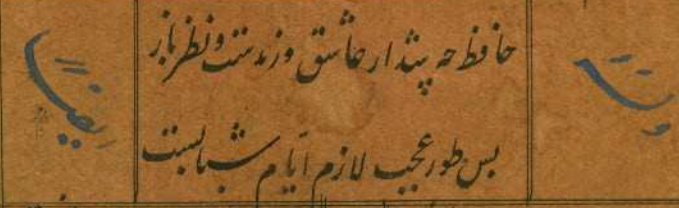 حافظ چه شد ار عاشق و رندست و نظرباز
بس طور عجب لازم ایام شبابست
ایضاً